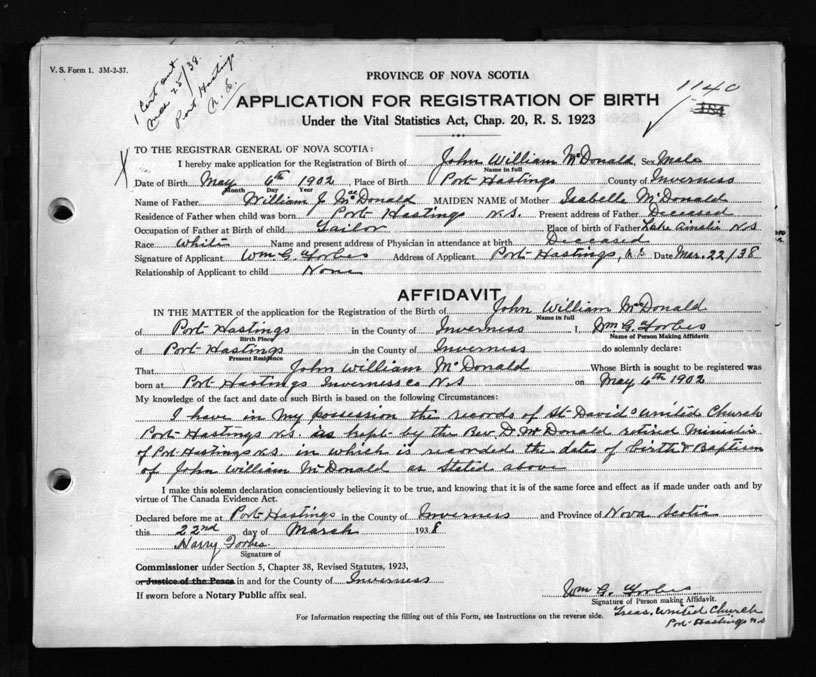 V. S. Form 1. 3M-2-37.
1 Cert sent
Mar 25/38
Port Hastings
N.S.
PROVINCE OF NOVA SCOTIA
1140
APPLICATION FOR REGISTRATION OF BIRTH
Under the Vital Statistics Act, Chap. 20, R. S. 1923
TO THE REGISTRAR GENERAL OF NOVA SCOTIA:
I hereby make application for the Registration of Birth of John William McDonald Sex Male
Name in full
Date of Birth May 6th 1902 Place of Birth Port Hastings County of Inverness
Month Day Year
Name of Father William J. McDonald MAIDEN NAME of Mother Isabella McDonald
Residence of Father when child was born Port Hastings N.S. Present address of Father Deceased
Occupation of Father at Birth of child Tailor Place of birth of Father Lake Ainslie N.S
Race White Name and present address of Physician in attendance at birth Deceased
Signature of Applicant Wm G. Forbes Address of Applicant Port Hastings, N.S. Date Mar. 22/38
Relationship of Applicant to child None
AFFIDAVIT
IN THE MATTER of the application for the Registration of the Birth of John William McDonald
Name in full
of Port Hastings in the County of Inverness I, Wm. G. Forbes
Birth Place Name of Person Making Affidavit
of Port Hastings in the County of Inverness do solemnly declare:
Present Residence
That John William McDonald Whose Birth is sought to be registered was
born at Port Hastings Inverness Co N.S on May 6th 1902
My knowledge of the fact and date of such Birth is based on the following Circumstances:
I have in my possession the records of St David's United Church
Port Hastings N.S. as kept by the Rev. D. McDonald retired Minister
of Port Hastings N.S. in which is recorded the dates of birth & Baptism
of John William McDonald as stated above
I make this solemn declaration conscientiously believing it to be true, and knowing that it is of the same force and effect as if made under oath and by
virtue of The Canada Evidence Act.
Declared before me at Port Hastings in the County of Inverness and Province of Nova Scotia
this 22nd day of March 1938
Harry Forbes
Signature of
Commissioner under Section 5, Chapter 38, Revised Statutes, 1923,
or Justice of the Peace in and for the County of Inverness
If sworn before a Notary Public affix seal.
Wm G. Forbes
Signature of Person making Affidavit.
Treas. United Church
Port Hastings N.S
For Information respecting the filling out of this Form, see Instructions on the reverse side.